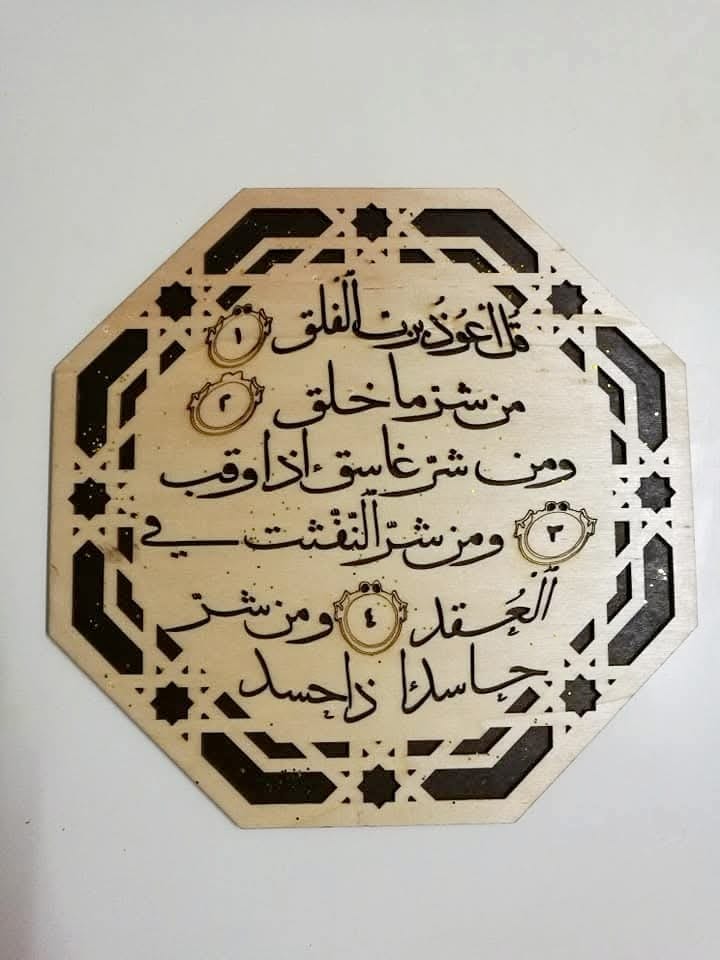 قُل أَعُوذُ بربّ ٱلفلق ١
من شرّ ما خلق ٢
ومن شرّ غاسق إذا وقب
٣ ومن شرّ ٱلنّفّثت في
ٱلعُقد ٤ ومن شرّ
حاسد إذا حسد